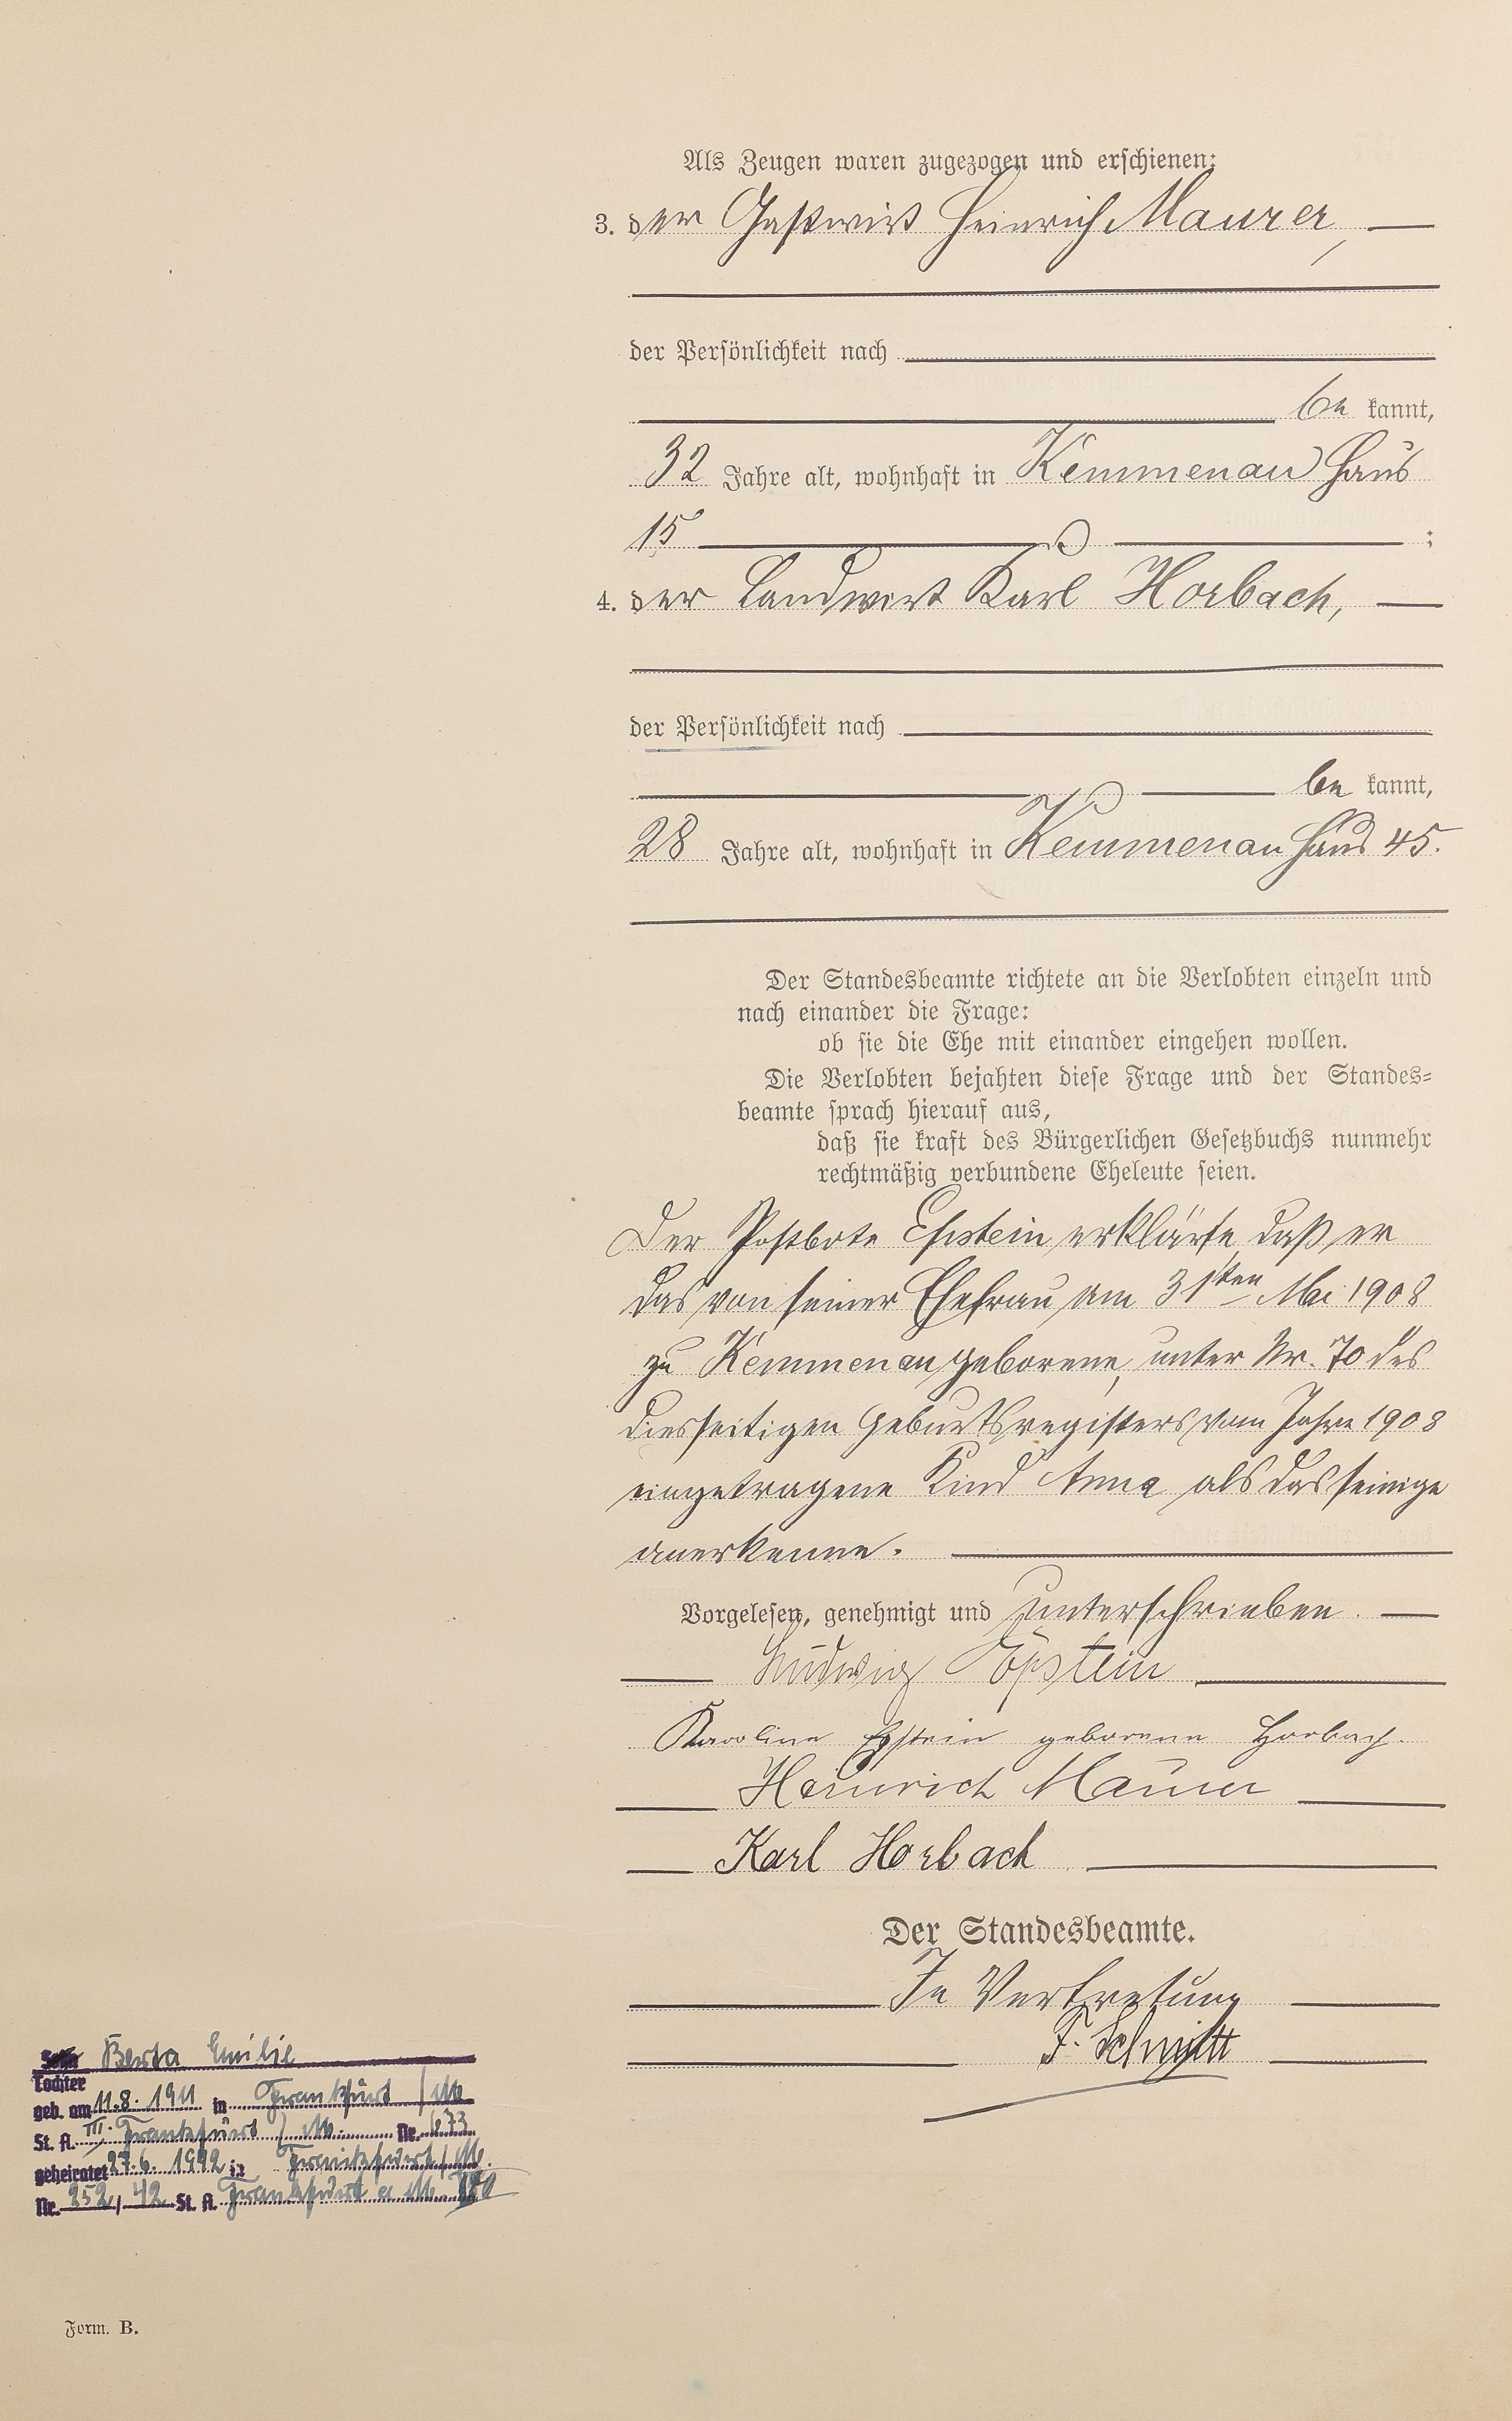 Als Zeugen waren zugezogen und erschienen:
3. der Gastwirt Heinrich Maurer,
der Persönlichkeit nach
be kannt,
32 Jahre alt, wohnhaft in Kemmenau Haus
15 ;
4. der Landwirt Karl Horbach,
der Persönlichkeit nach
be kannt,
28 Jahre alt, wohnhaft in Kemmenau Haus 45.
Der Standesbeamte richtete an die Verlobten einzeln und
nach einander die Frage:
ob sie die Ehe mit einander eingehen wollen.
Die Verlobten bejahten diese Frage und der Standes=
beamte sprach hierauf aus,
daß sie kraft des Bürgerlichen Gesetzbuchs nunmehr
rechtmäßig verbundene Eheleute seien.
Der Postbote Epstein erklärte, daß er
das von seiner Ehefrau am 31sten Mai 1908
zu Kemmenau geborene, unter Nr. 70 des
diesseitigen Geburtsregisters vom Jahre 1908
eingetragene Kind Anna als das seinige
anerkenne.
Vorgelesen, genehmigt und unterschrieben.
Ludwig Epstein
Karoline Epstein geborene Horbach.
Heinrich Maurer
Karl Horbach
Der Standesbeamte.
In Vertretung
F. Schmitt
Sohn Berta Emilie
Tochter
geb. am 11.8.1911 in Frankfurt / M.
St. A. III. Frankfurt / M. Nr. 673
geheiratet 27.6.1942 in Frankfurt / M.
Nr. 252 / 42 St. A. Frankfurt a M.
Form. B.